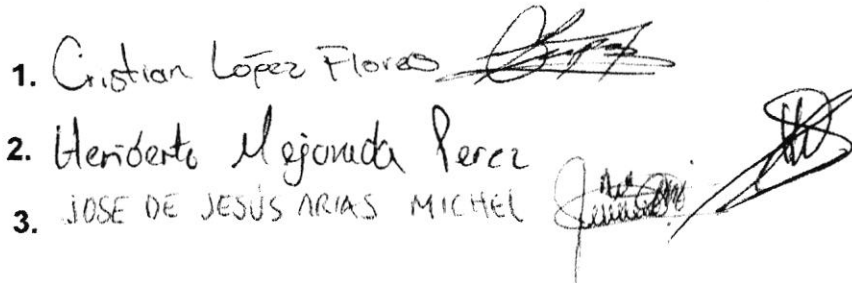 1. Cristian López Flores
2. Heriberto Mejorada Perez
3. JOSE DE JESÚS ARIAS MICHEL